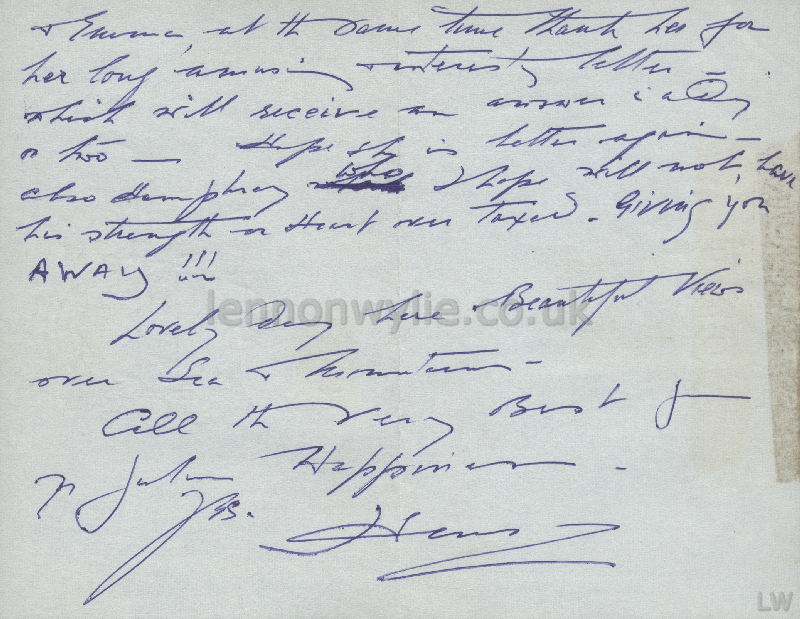 & Emma, at th same time thank her for
her long amusing & interesty letter -
which will receive an answer i a Day
or two — Hope she is better again -
also Humphrey who I hope will not, have
his strength or Heart over Taxed. Giving you
AWAY !!!
lennonwylie.co.uk
Lovely day here & Beautiful Views
over Sea & Mountains -
All th Very Best for
Happiness.
JB.
LW